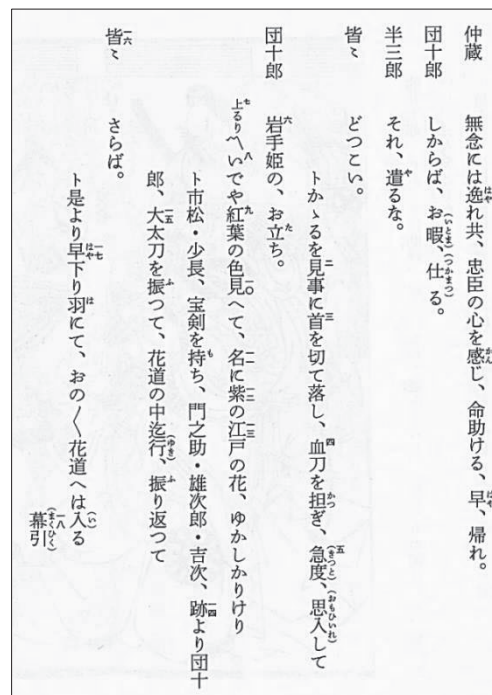 仲蔵　無念には逸れ共、忠臣の心を感じ、命助ける、早、帰れ。
団十郎　しからば、お暇、仕る。
半三郎　それ、遣るな。
皆〻　どつこい。
ト かゝるを見事に首を切て落し、血刀を担ぎ、急度、思入して
団十郎　岩手姫の、お立ち。
上るり〽いでや紅葉の色見へて、名に紫の江戸の花、ゆかしかりけり
ト市松・少長、宝剣を持ち、門之助・雄次郎・吉次、跡より団十
郎、大太刀を振つて、花道の中迄行、振り返つて
皆〻　さらば。
ト是より早下り羽にて、おの〳〵花道へは入る
幕引